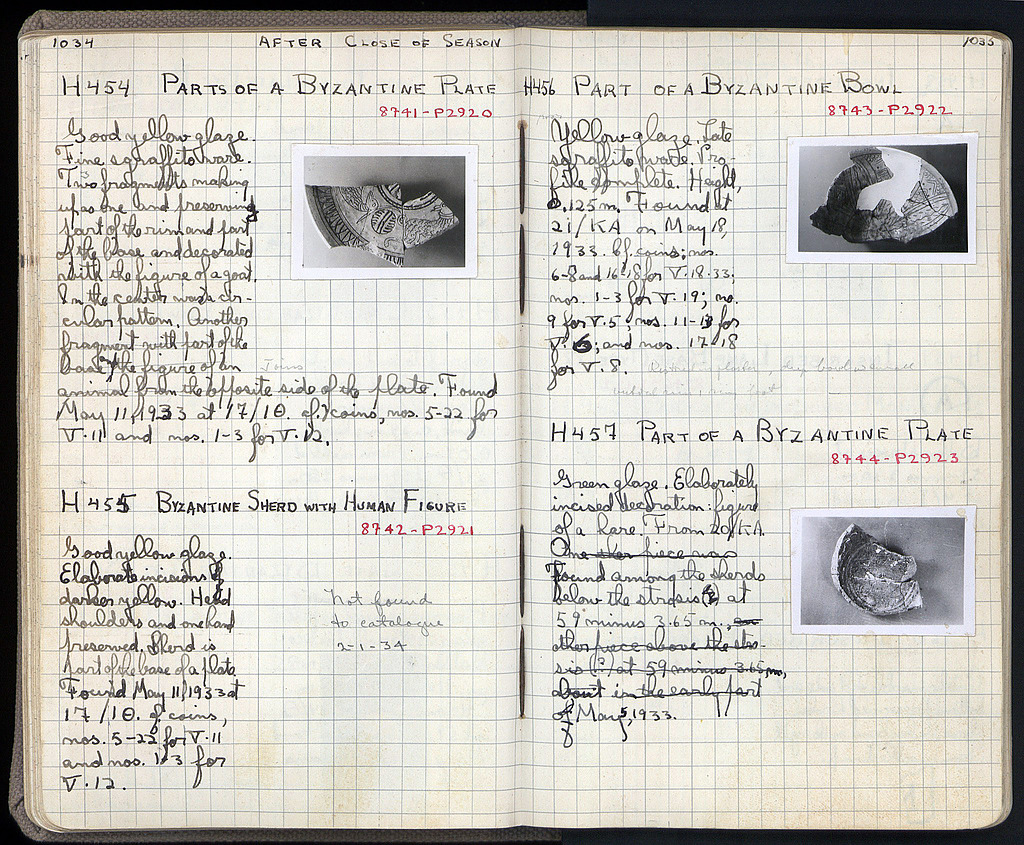 1034 AFTER CLOSE OF SEASON
H 454 PARTS OF A BYZANTINE PLATE
8741-P2920
Good yellow glaze.
Fine sgraffito ware.
Two fragments making
up as one and preserving
part of the rim and part
of the base and decorated
with the figure of a goat.
In the center was a cir-
cular pattern. Another
fragment with part of the
base & the figure of an
Joins
animal from the opposite side of the plate. Found
May 11, 1933 at 17/ΙΘ. cf. coins, nos. 5-22 for
V·11 and nos. 1-3 for V·12.
H 455 BYZANTINE SHERD WITH HUMAN FIGURE
8742-P2921
Good yellow glaze.
Elaborate incisions of
darker yellow. Head
shoulders and one hand
preserved. Sherd is
part of the base of a plate.
Found May 11, 1933 at
17/ΙΘ. cf. coins,
nos. 5-22 for V·11
and nos. 1-3 for
V·12.
Not found
to catalogue
2-1-34
1035
H456 PART OF A BYZANTINE BOWL
8743-P2922
Yellow glaze. Late
sgraffito ware. Pro-
file complete. Height,
0.125 m. Found at
21/ΚΑ on May 18,
1933. Cf. coins; nos.
6-8 and 16-18 for V·18·33;
nos. 1-3 for V·19; no.
9 for V·5; nos. 11-13 for
V·6; and nos. 17-18
for V·8.
H457 PART OF A BYZANTINE PLATE
8744-P2923
Green glaze. Elaborately
incised decoration: figure
of a hare. From 20/ΚΑ.
One other piece was
Found among the sherds
below the strosis(?) at
59 minus 3.65 m.,
other piece above the stro-
sis (?) at 59 minus 3.65 m.,
about in the early part
of May 5, 1933.